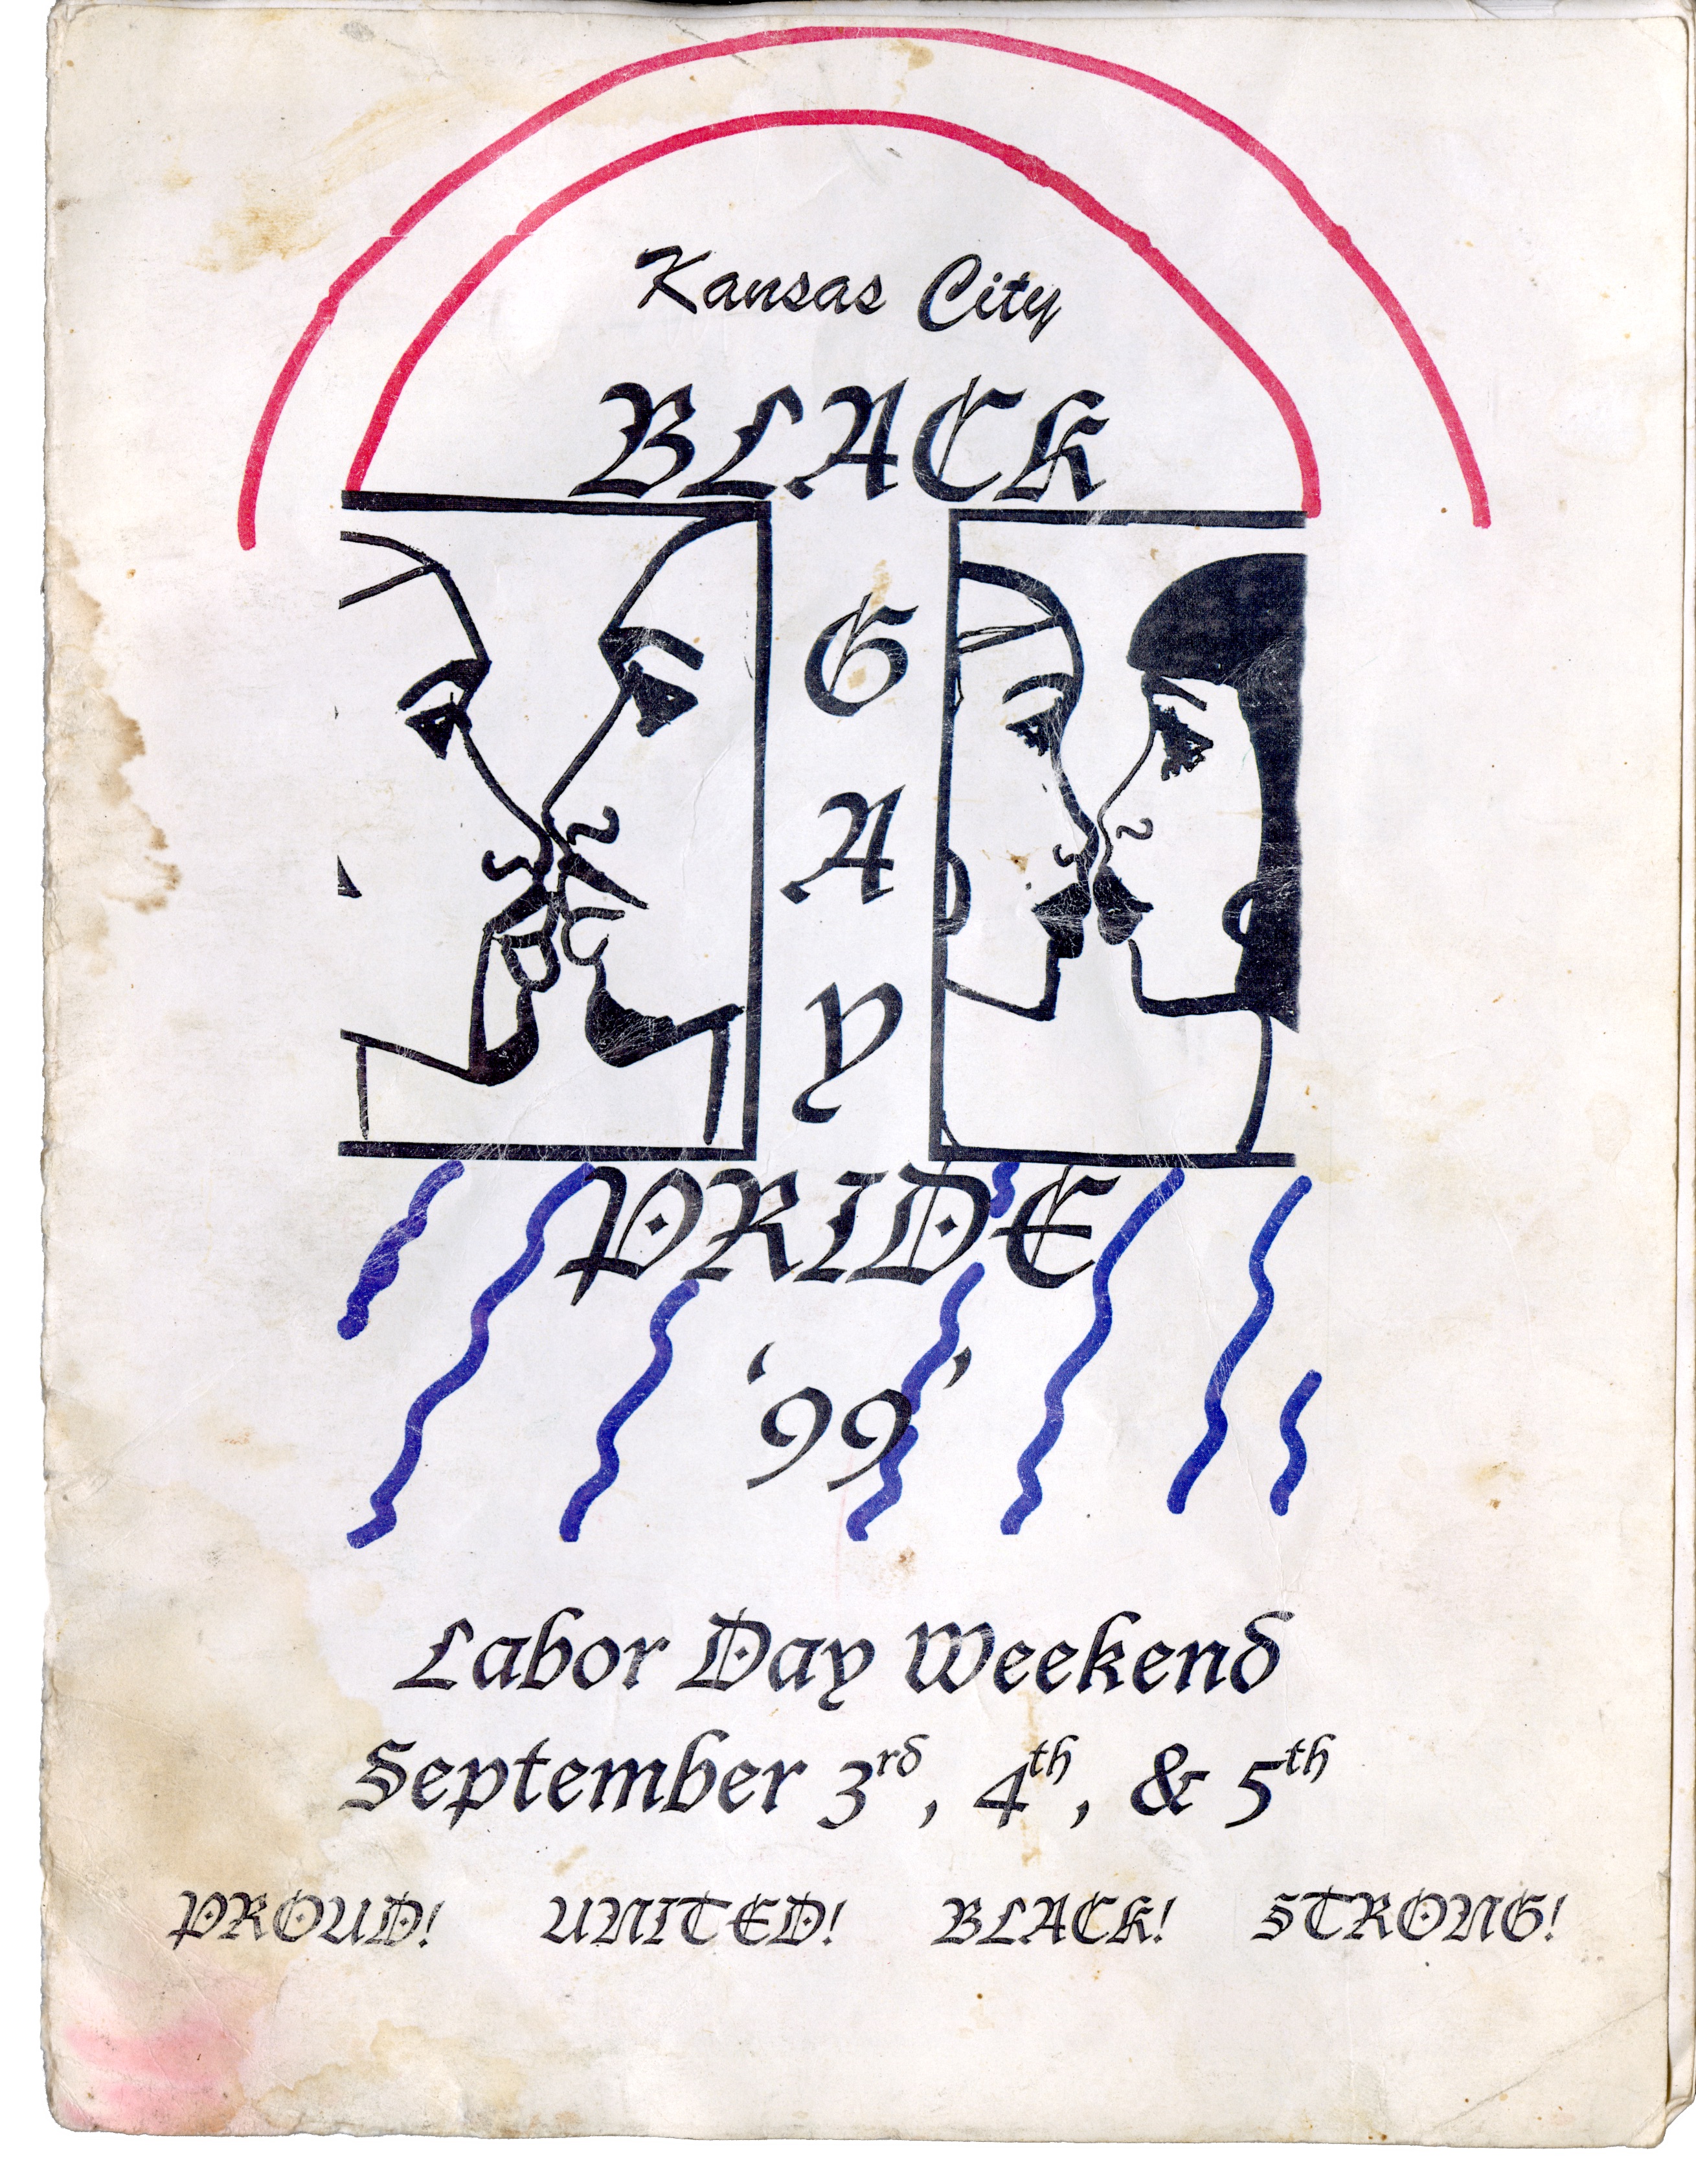 Kansas City
BLACK
G
A
Y
PRIDE
‘99’
Labor Day Weekend
September 3rd, 4th, & 5th
PROUD! UNITED! BLACK! STRONG!